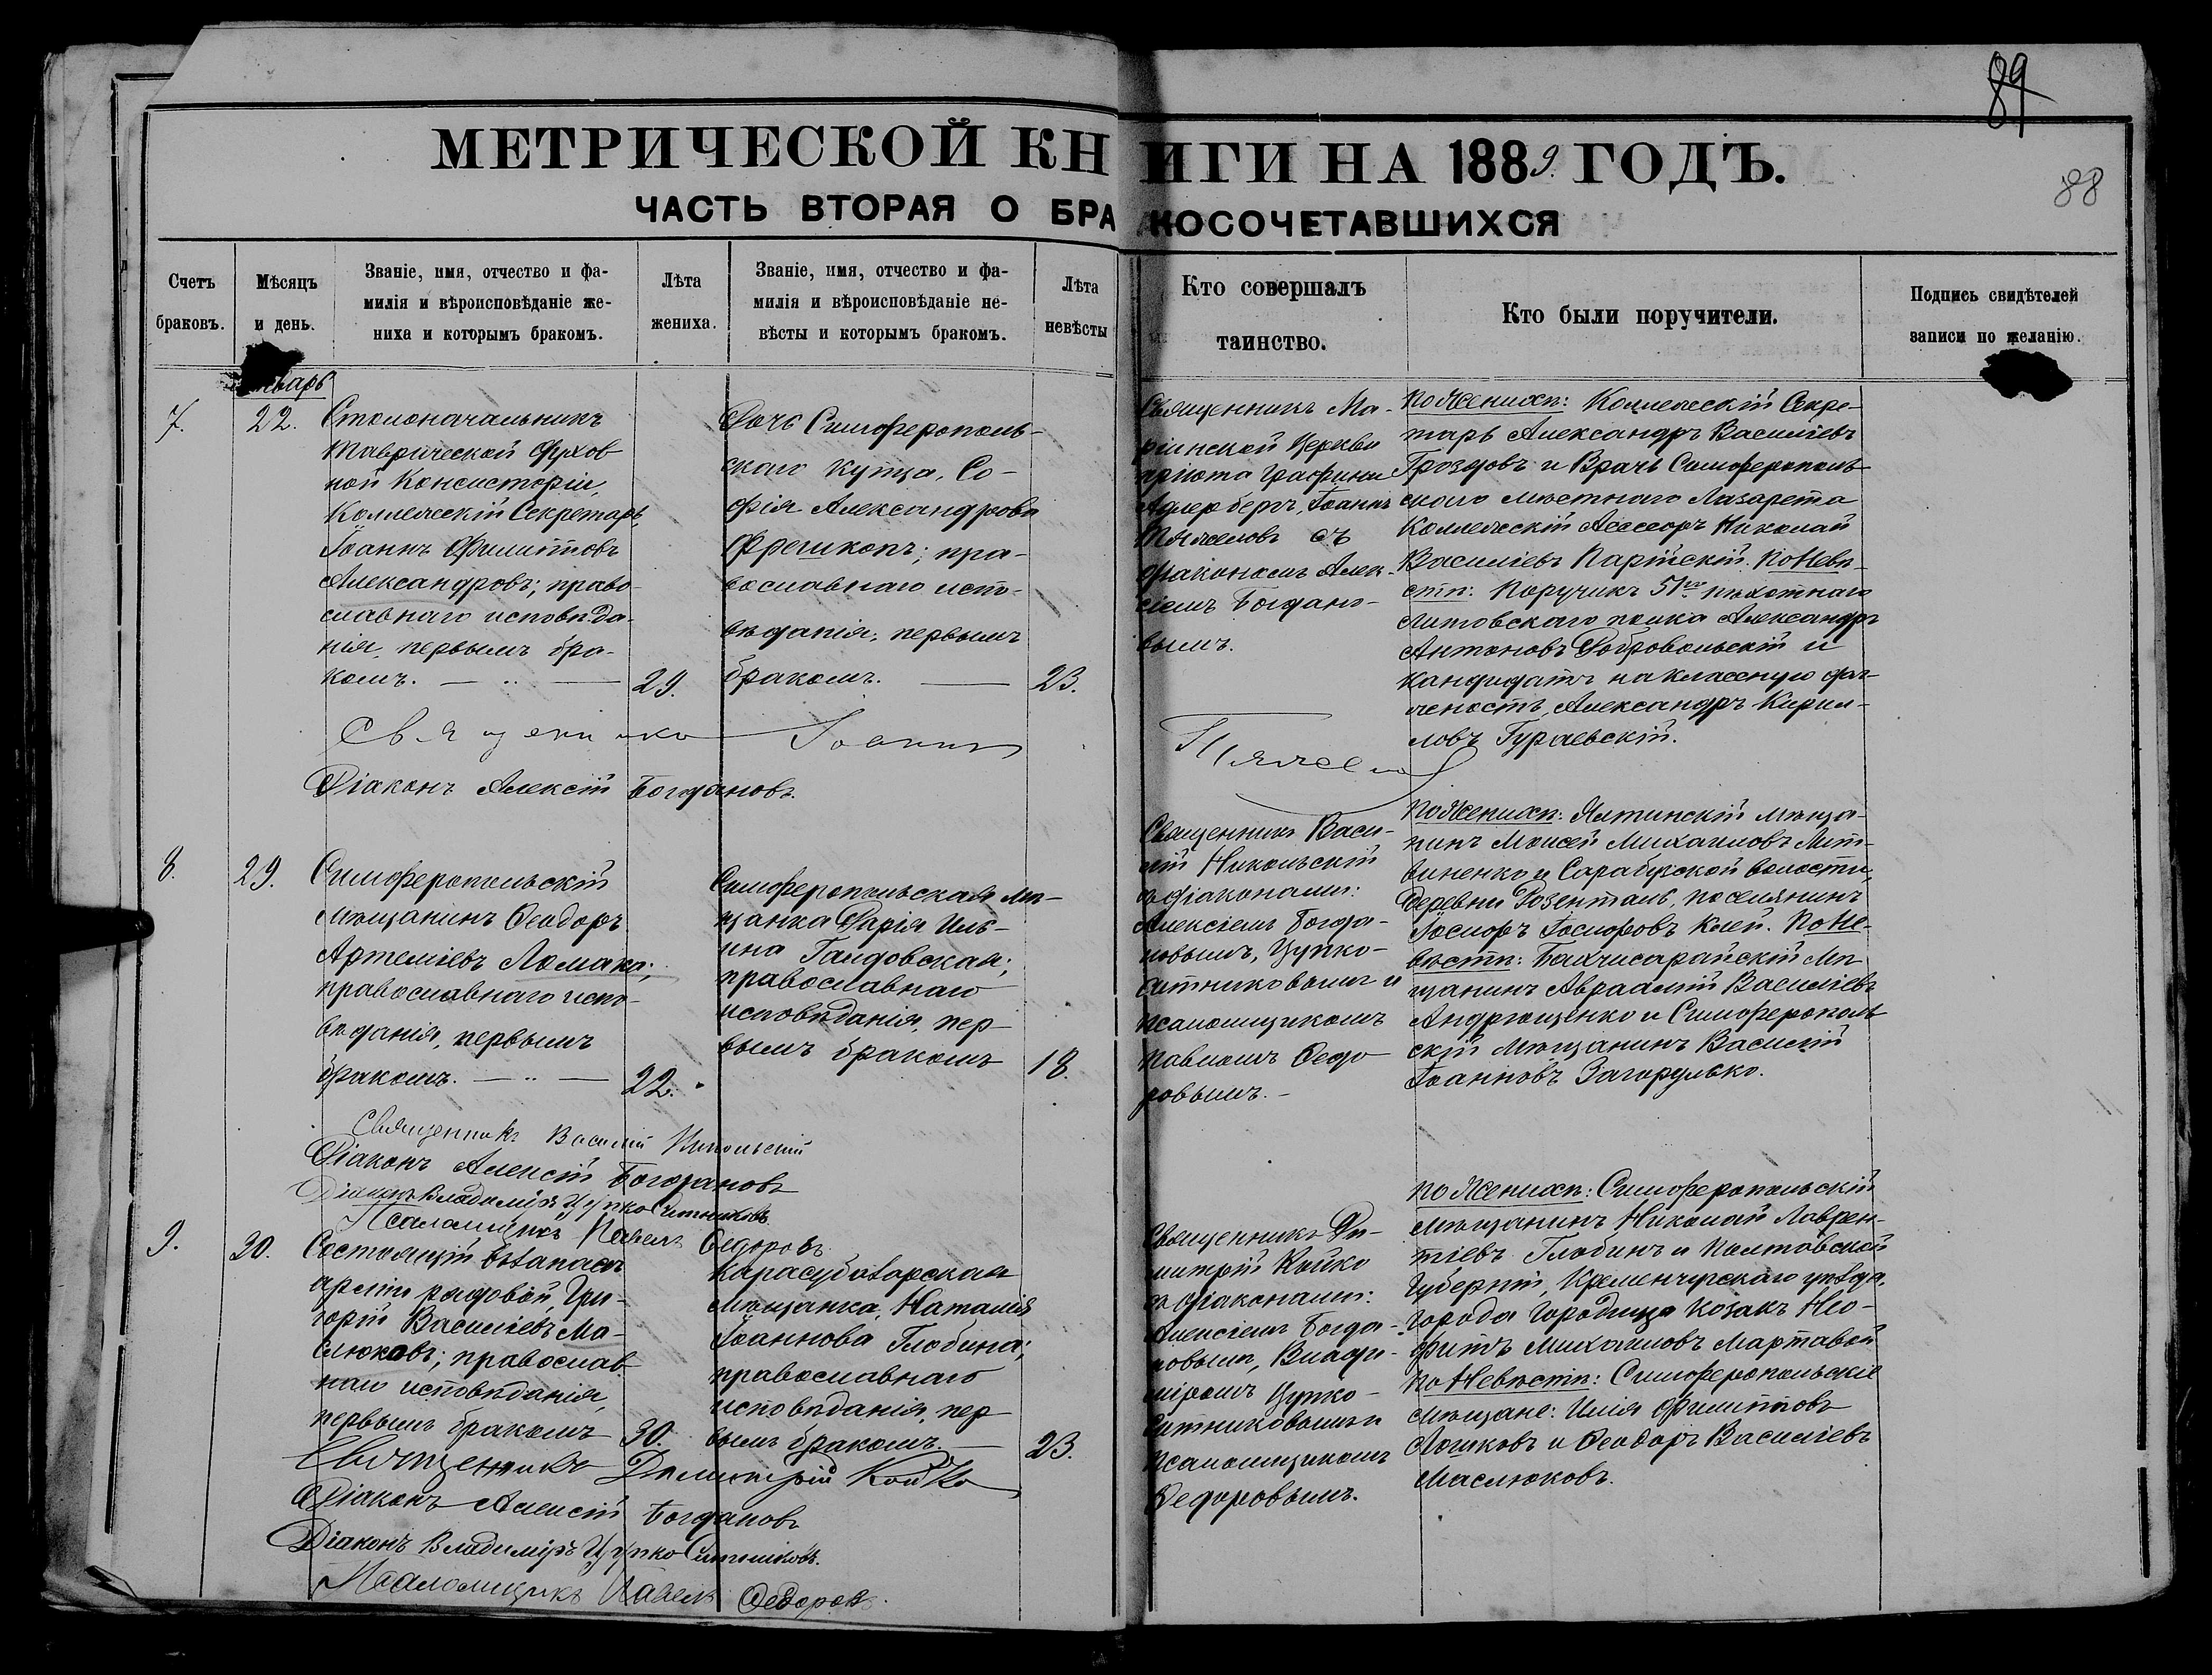 89
МЕТРИЧЕСКОЙ КНИГИ НА 1889. ГОДЪ.
88
ЧАСТЬ ВТОРАЯ О БРАКОСОЧЕТАВШИХСЯ
Счетъ браковъ.
Мѣсяцъ и день.
Званіе, имя, отчество и фа-
милія и вѣроисповѣданіе же-
ниха и которымъ бракомъ.
Лѣта жениха.
Званіе, имя, отчество и фа-
милія и вѣроисповѣданіе не-
вѣсты и которымъ бракомъ.
Лѣта невѣсты
Кто совершалъ
таинство.
Кто были поручители.
Подпись свидѣтелей
записи по желанію.
7.
22.
Столоначальникъ
Таврической Духов
ной Консисторіи,
Коллежскій Секретарь
Іоаннъ Филипповъ
Александровъ; право-
славнаго исповѣда-
нія, первымъ бра-
комъ.
29.
Дочь Симферополь-
скаго купца, Со-
фія Александрова
пра-
вославнаго испо-
вѣданія, первымъ
бракомъ.
23.
Священникъ Ма-
ріинской Церкви
пріюта Графини
Адлербергъ, Іоаннъ
съ
Діакономъ Алек-
сіемъ Богдано-
вымъ.
По Женихѣ: Коллежскій Секре-
тарь Александръ Василіевъ
Гроздовъ и Врачъ Симферополь-
скаго мѣстнаго Лазарета
Коллежскій Асессоръ Николай
Василіевъ Парійскій. По Невѣ-
стѣ: Поручикъ 51го пѣхотнаго
Литовскаго полка Александръ
Антоновъ Добровольскій и
Кандидатъ на классную дол-
жность, Александръ Кирил-
ловъ Гураевскій.
Священникъ Іоаннъ
Діаконъ Алексій Богдановъ.
8.
29.
Симферопольскій
Мѣщанинъ Ѳеодоръ
Артеміевъ Ломака;
православнаго испо-
вѣданія, первымъ
бракомъ.
22.
Симферопольская мѣ-
щанка Дарія Иль-
ина
православнаго
исповѣданія, пер-
вымъ бракомъ
18.
Священникъ Васи-
лій Никольскій
съ діаконами:
Алексіемъ Богда-
новымъ, Цупко-
Ситниковымъ и
псаломщикомъ
Павломъ Ѳедо-
ровымъ.
По Женихѣ: Ялтинскій мѣща-
нинъ Моисей Михаиловъ Лит-
виненко и Сарабузской волости,
деревни Розенталь, поселянинъ
Іосифъ Іосифовъ Клей. По Не-
вѣстѣ: Бахчисарайскій Мѣ-
щанинъ Авраамій Василіевъ
Андрющенко и Симферополь
скій Мѣщанинъ Василій
Іоанновъ Загорулько.
Священникъ Василій Никольскій
Діаконъ Алексій Богдановъ
Діаконъ Владиміръ Цупко Ситниковъ
Псаломщикъ Павелъ Ѳедоровъ
9.
30.
Состоящій въ запасѣ
арміи рядовой, Гри-
горій Василіевъ Ма-
слюковъ; православ-
наго исповѣданія,
первымъ бракомъ
30.
Карасубазарская
Мѣщанка, Наталія
Іоаннова Глобина;
православнаго
исповѣданія, пер
вымъ бракомъ.
23.
Священникъ Ди-
митрій Койко
съ діаконами:
Алексіемъ Богда-
новымъ, Влади-
міромъ Цупко-
Ситниковымъ и
псаломщикомъ
Ѳедоровымъ.
По Женихѣ: Симферопольскій
мѣщанинъ Николай Лаврен-
тіевъ Глобинъ и Полтавской
Губерніи, Кременчугскаго уѣзда,
города Городища козакъ Нео-
фитъ Михаиловъ Мартавой
По Невѣстѣ: Симферопольскіе
Мѣщане: Илія Филипповъ
Лошковъ и Ѳеодоръ Василіевъ
Маслюковъ.
Священникъ Димитрій Койко
Діаконъ Алексій Богдановъ
Діаконъ Владиміръ Цупко Ситниковъ.
Псаломщикъ Павелъ Ѳедоровъ.